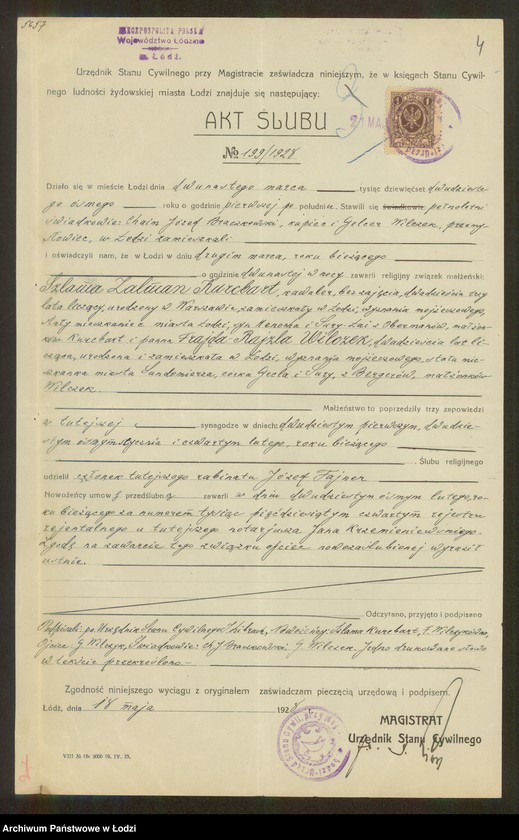 5457
RZECZPOSPOLITA POLSKA
Województwo Łódzkie
m. Łódź.
4
Urzędnik Stanu Cywilnego przy Magistracie zaświadcza niniejszym, że w księgach Stanu Cywil-
nego ludności żydowskiej miasta Łodzi znajduje się następujący:
AKT ŚLUBU
№ 199/1928
21 MAJ
Działo się w mieście Łodzi dnia dwunastego marca tysiąc dziewięćset dwudzieste-
go ósmego roku o godzinie pierwszej po południu. Stawili się świadkowie: pełnoletni
świadkowie: Chaim Józef Braczkowski, kupiec i Gelcer Wilczek, przemy-
słowiec, w Łodzi zamieszkali
i oświadczyli nam, że w Łodzi w dniu drugim marca, roku bieżącego
o godzinie dwunastej w nocy zawarli religijny związek małżeński:
Szlama Zalman Kurcbart, kawaler, bez zajęcia, dwadzieścia trzy
lata liczący, urodzony w Warszawie, zamieszkały w Łodzi, wyznania mojżeszowego,
stały mieszkaniec miasta Łodzi, syn Menecha i Sury-Łai z Obermanów, małżon-
ków Kurcbart i panna Frajda-Rajzla Wilczek, dwadzieścia lat li-
cząca, urodzona i zamieszkała w Łodzi, wyznania mojżeszowego, stała mie-
szkanka miasta Sandomierza, córka Gecla i Sury, z Bergerów, małżonków
Wilczek.
Małżeństwo to poprzedziły trzy zapowiedzi
w tutejszej synagodze w dniach: dwudziestym pierwszym, dwudzie-
stym ósmym stycznia i czwartym lutego, roku bieżącego
Ślubu religijnego
udzielił członek tutejszego rabinatu Józef Fajner
Nowożeńcy umowę przedślubną zawarli w dniu dwudziestym ósmym lutego, ro-
ku bieżącego za numerem tysiąc pięćdziesiątym czwartym rejestru
rejentalnego u tutejszego notarjusza Jana Krzemieniewskiego.
Zgodę na zawarcie tego związku ojciec nowozaślubionej wyraził
ustnie.
Odczytano, przyjęto i podpisano
Podpisali: po. Urzędnik Stanu Cywilnego Nowożeńcy: Szlama Kurcbart, F. Wilczkówna,
Ojciec G. Wilczek, Świadkowie: Ch. J. Braczkowski, G. Wilczek. Jedno drukowane słowo
w tekście przekreślono
Zgodność niniejszego wyciągu z oryginałem zaświadczam pieczęcią urzędową i podpisem.
Łódź, dnia 18 maja 1928
MAGISTRAT
Urzędnik Stanu Cywilnego
VIII № 18. 5000 19. IV. 25.
Archiwum Państwowe w Łodzi